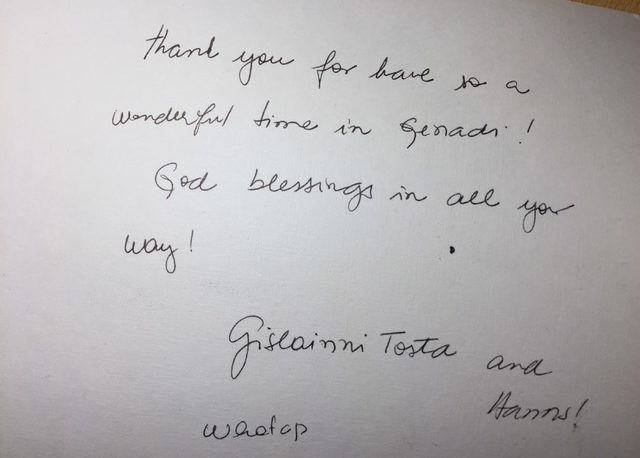 thank you for have so a
wonderful time in Genadi!
God blessings in all your
way!
Gislainni Tosta and
Hanns!
whatap